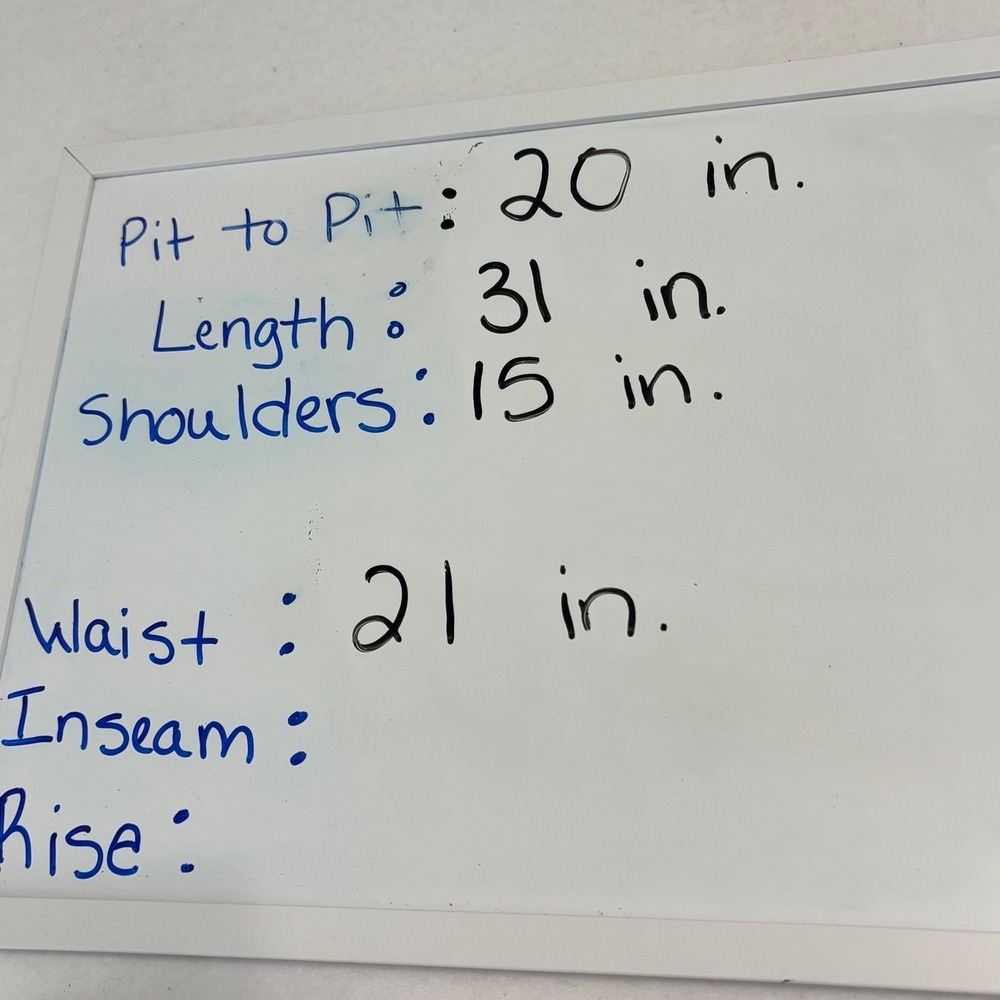 Pit to Pit: 20 in.
Length: 31 in.
Shoulders: 15 in.
Waist: 21 in.
Inseam:
Rise: